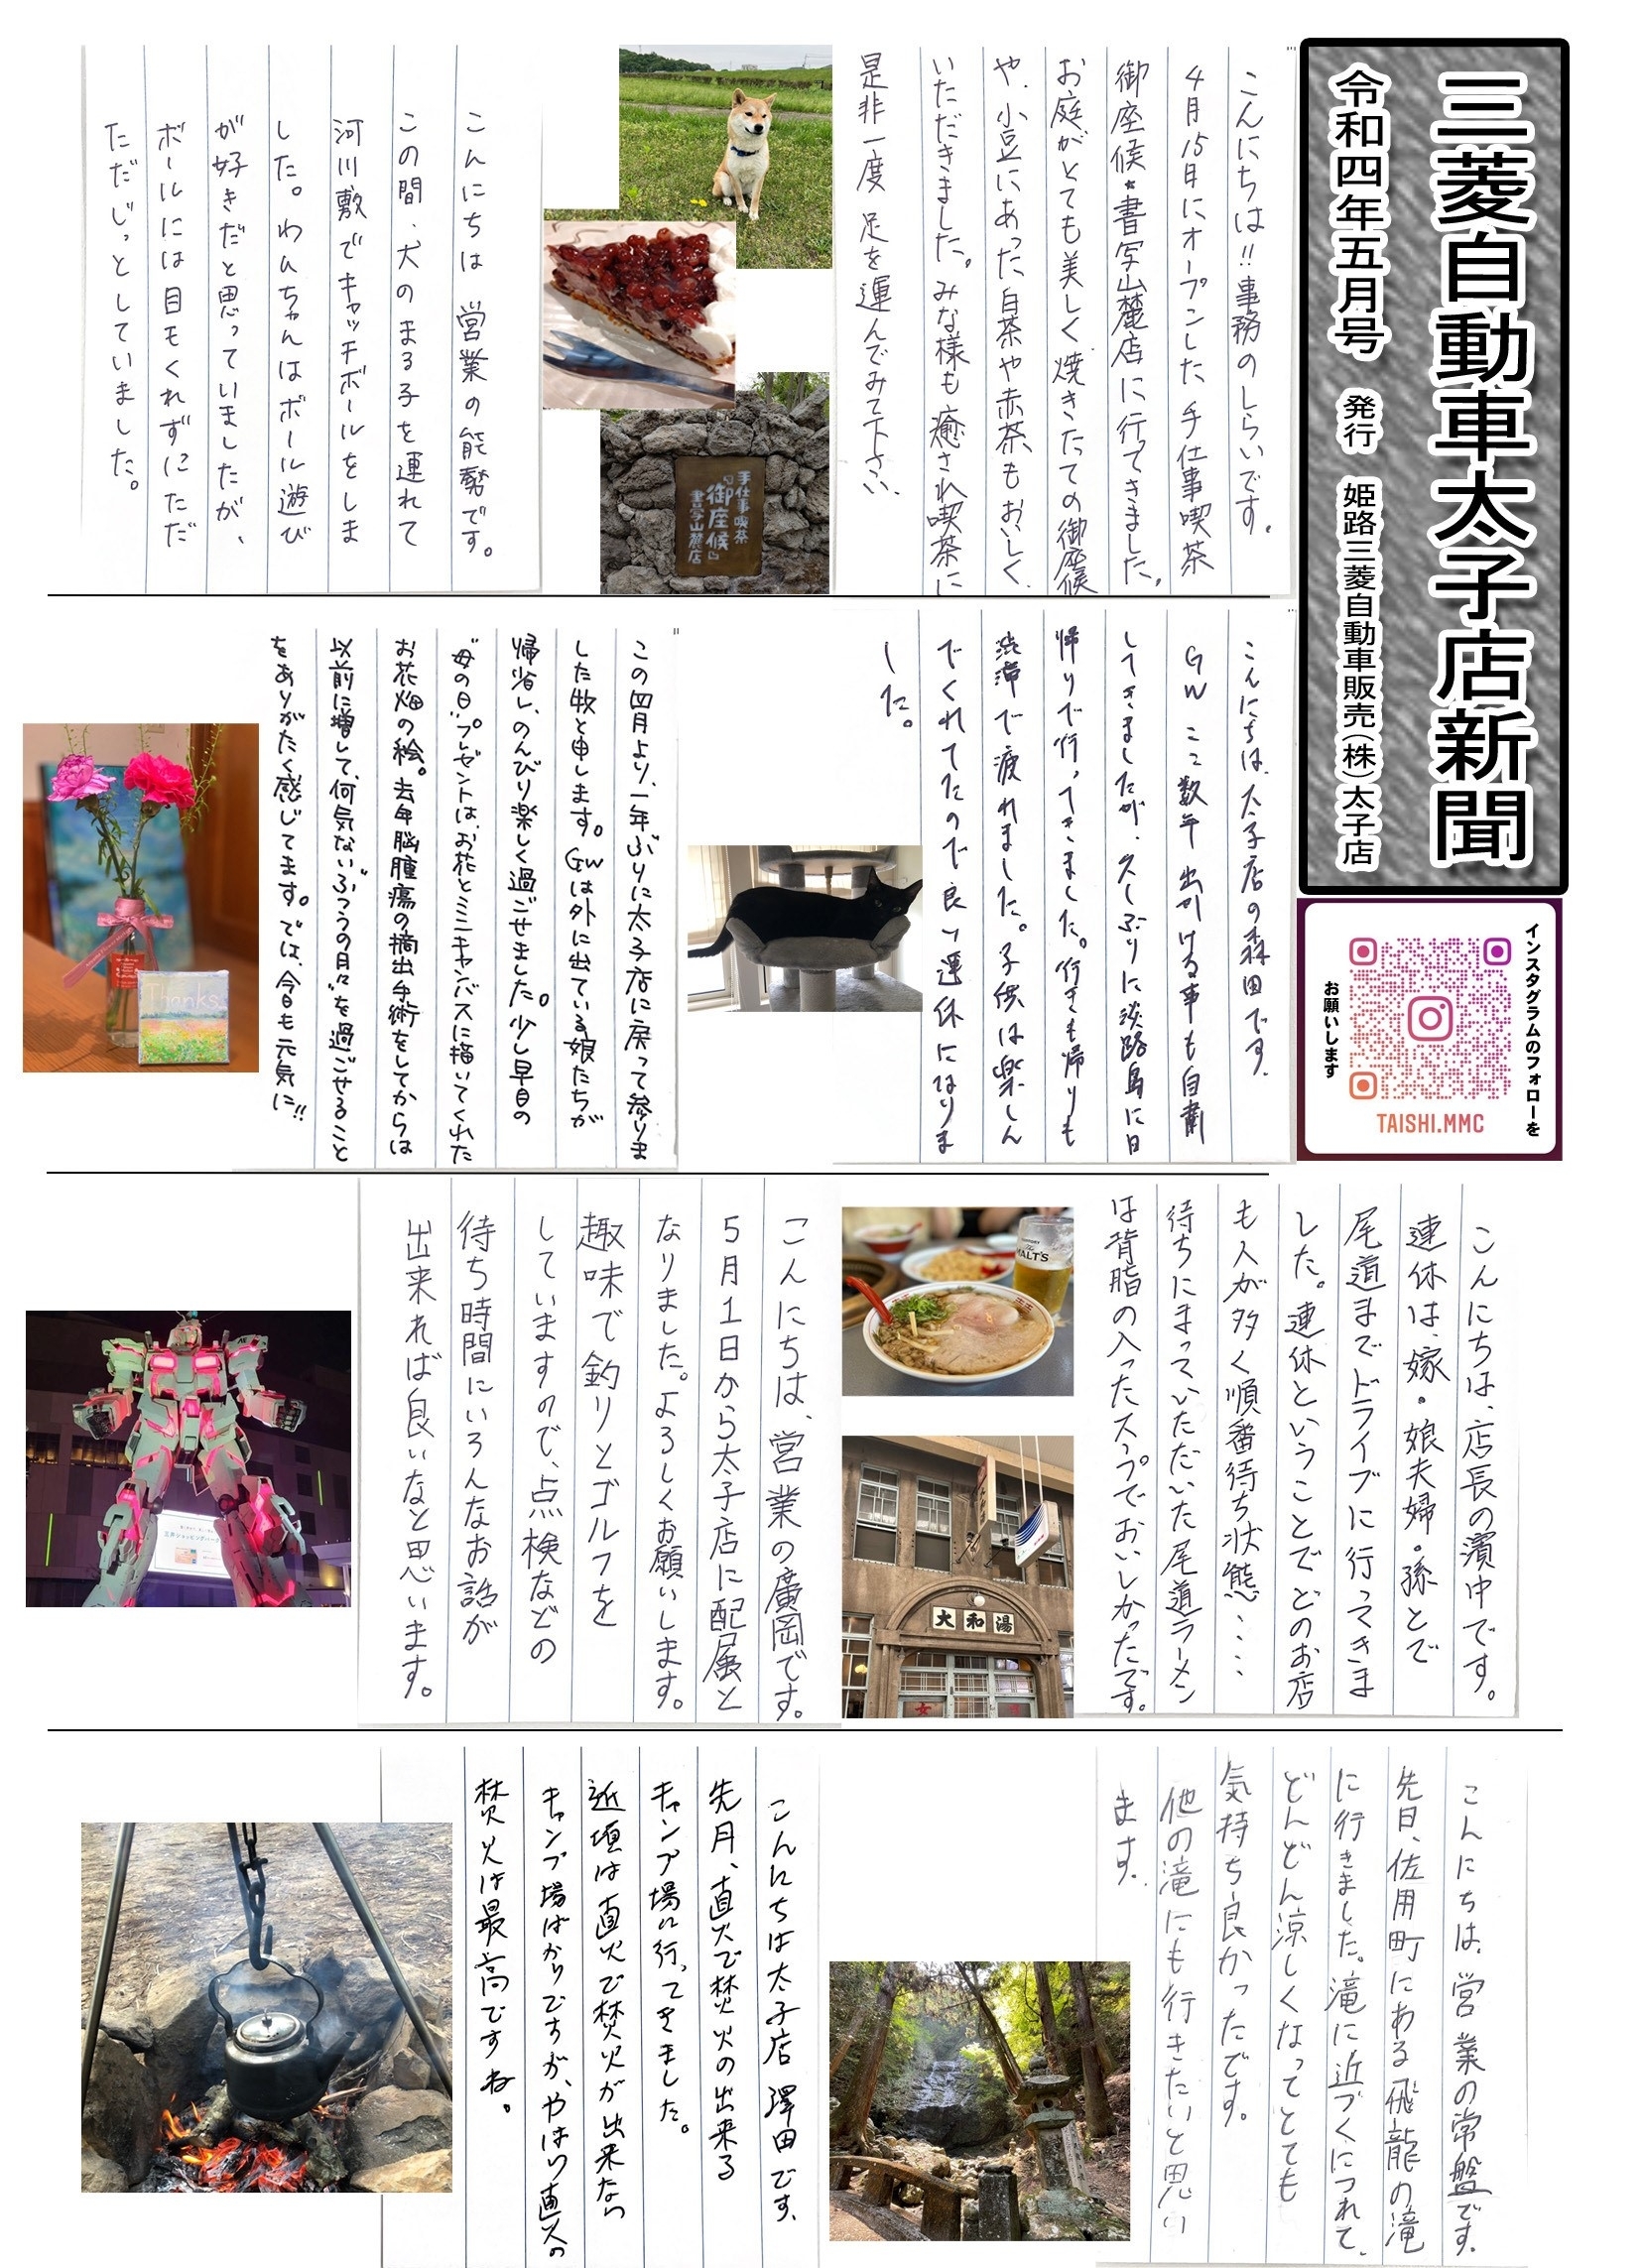 三菱自動車太子店新聞
令和四年五月号 発行 姫路三菱自動車販売(株)太子店
インスタグラムのフォローを
お願いします
TAISHI.MMC
こんにちは!!事務のしらいです。
4月15日にオープンした手仕事喫茶
御座候・書写山麓店に行ってきました。
お庭がとても美しく焼きたての御座候
や、小豆にあった白茶や赤茶もおいしく
いただきました。みな様も癒され喫茶に
是非一度足を運んでみて下さい、
手仕事喫茶
『御座候』
書写山麓店
こんにちは 営業の能勢です。
この間、犬のまる子を連れて
河川敷でキャッチボールをしま
した。わんちゃんはボール遊び
が好きだと思っていましたが、
ボールには目もくれずにただ
ただじっとしていました。
こんにちは、太子店の森田です。
GW ここ数年 出かける事も自粛
してきましたが、久しぶりに淡路島に日
帰りで行ってきました。行きも帰りも
渋滞で疲れました。子供は楽しん
でくれてたので良い連休になりま
した。
この四月より、一年ぶりに太子店に戻って参りま
した牧と申します。GWは外に出ている娘たちが
帰省し、のんびり楽しく過ごせました。少し早目の
"母の日"プレゼントは、お花とミニキャンバスに描いてくれた
お花畑の絵。去年脳腫瘍の摘出手術をしてからは
以前に増して、何気ない"ふつうの月々"を過ごせること
をありがたく感じてます。では、今日も元気に!!
Thanks
こんにちは、店長の濱中です。
連休は、嫁・娘夫婦・孫とで
尾道までドライブに行ってきま
した。連休ということでどのお店
も人が多く順番待ち状態・・・・
待ちにまっていただいた尾道ラーメン
は背脂の入ったスープでおいしかったです。
The
MALT'S
大和湯
女
こんにちは、営業の廣岡です。
5月1日から太子店に配属と
なりました。よろしくお願いします。
趣味で釣りとゴルフを
していますので、点検などの
待ち時間にいろんなお話が
出来れば良いなと思います。
こんにちは、営業の常盤です。
先日、佐用町にある飛龍の滝
に行きました。滝に近づくにつれて、
どんどん涼しくなってとても
気持ち良かったです。
他の滝にも行きたいと思い
ます。
こんにちは太子店 澤田です。
先月、直火で焚火の出来る
キャンプ場に行ってきました。
近頃は直火で焚火が出来ない
キャンプ場ばかりですが、やはり直火の
焚火は最高ですね。